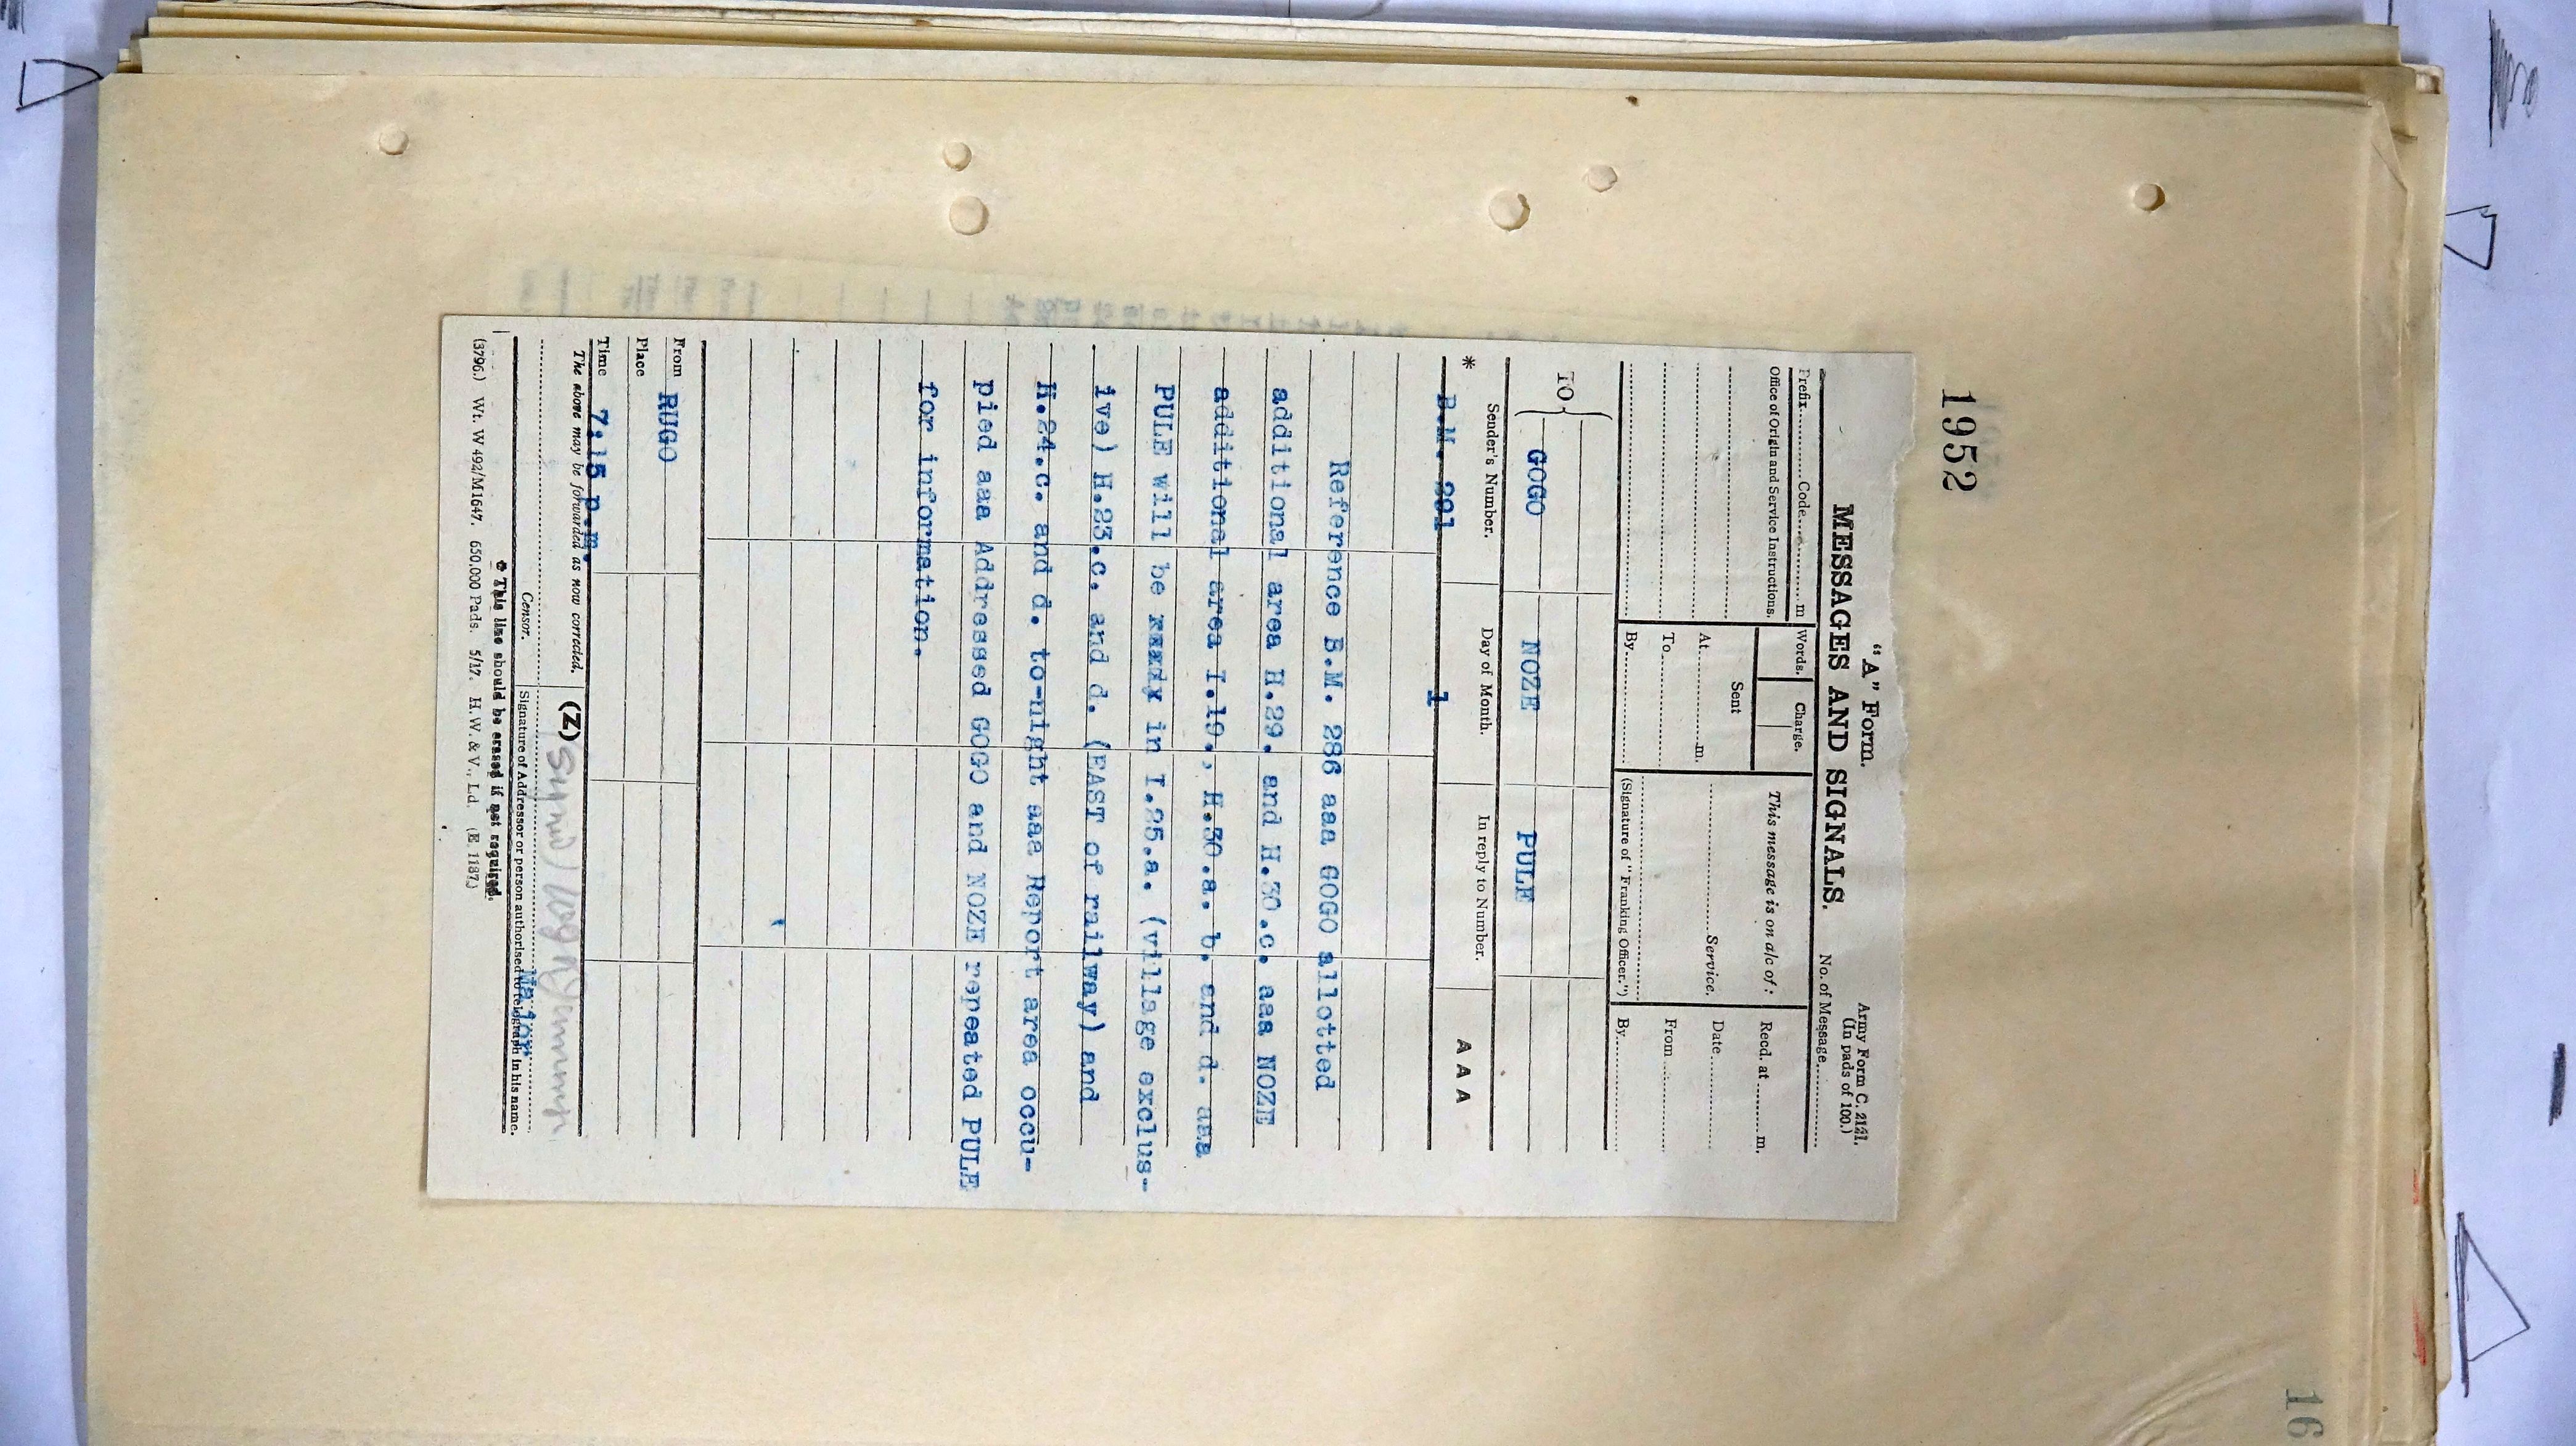 1952
"A" Form.
Army Form C. 2121.
(In pads of 100.)
MESSAGES AND SIGNALS.
No. of Message
Prefix Code m
Words. Charge.
This message is on a/c of:
Recd. at m.
Office of Origin and Service Instructions.
Sent
Date
At m.
Service.
From
To
By
(Signature of "Franking Officer.")
By
TO
GOGO NOZE PULE
Sender's Number. Day of Month. In reply to Number.
* B.M. 291 1 A A A
Reference B.M. 286 aaa GOGO allotted
additional area H.29. and H.30.c. aaa NOZE
additional area I.19., H.30.a. b. and d. aaa
PULE will be in I.25.a. (village exclus-
ive) H.23.c. and d. (EAST of railway) and
H.24.c. and d. to-night aaa Report area occu-
pied aaa Addressed GOGO and NOZE repeated PULE
for information.
From RUGO
Place
Time 7.15 p.m.
The above may be forwarded as now corrected. (Z)
Major
Censor. Signature of Addressor or person authorised to telegraph in his name.
* This line should be erased if not required.
(3796.) Wt. W 492/M1647. 650,000 Pads. 5/17. H.W. & V., Ld. (E. 1187.)
16